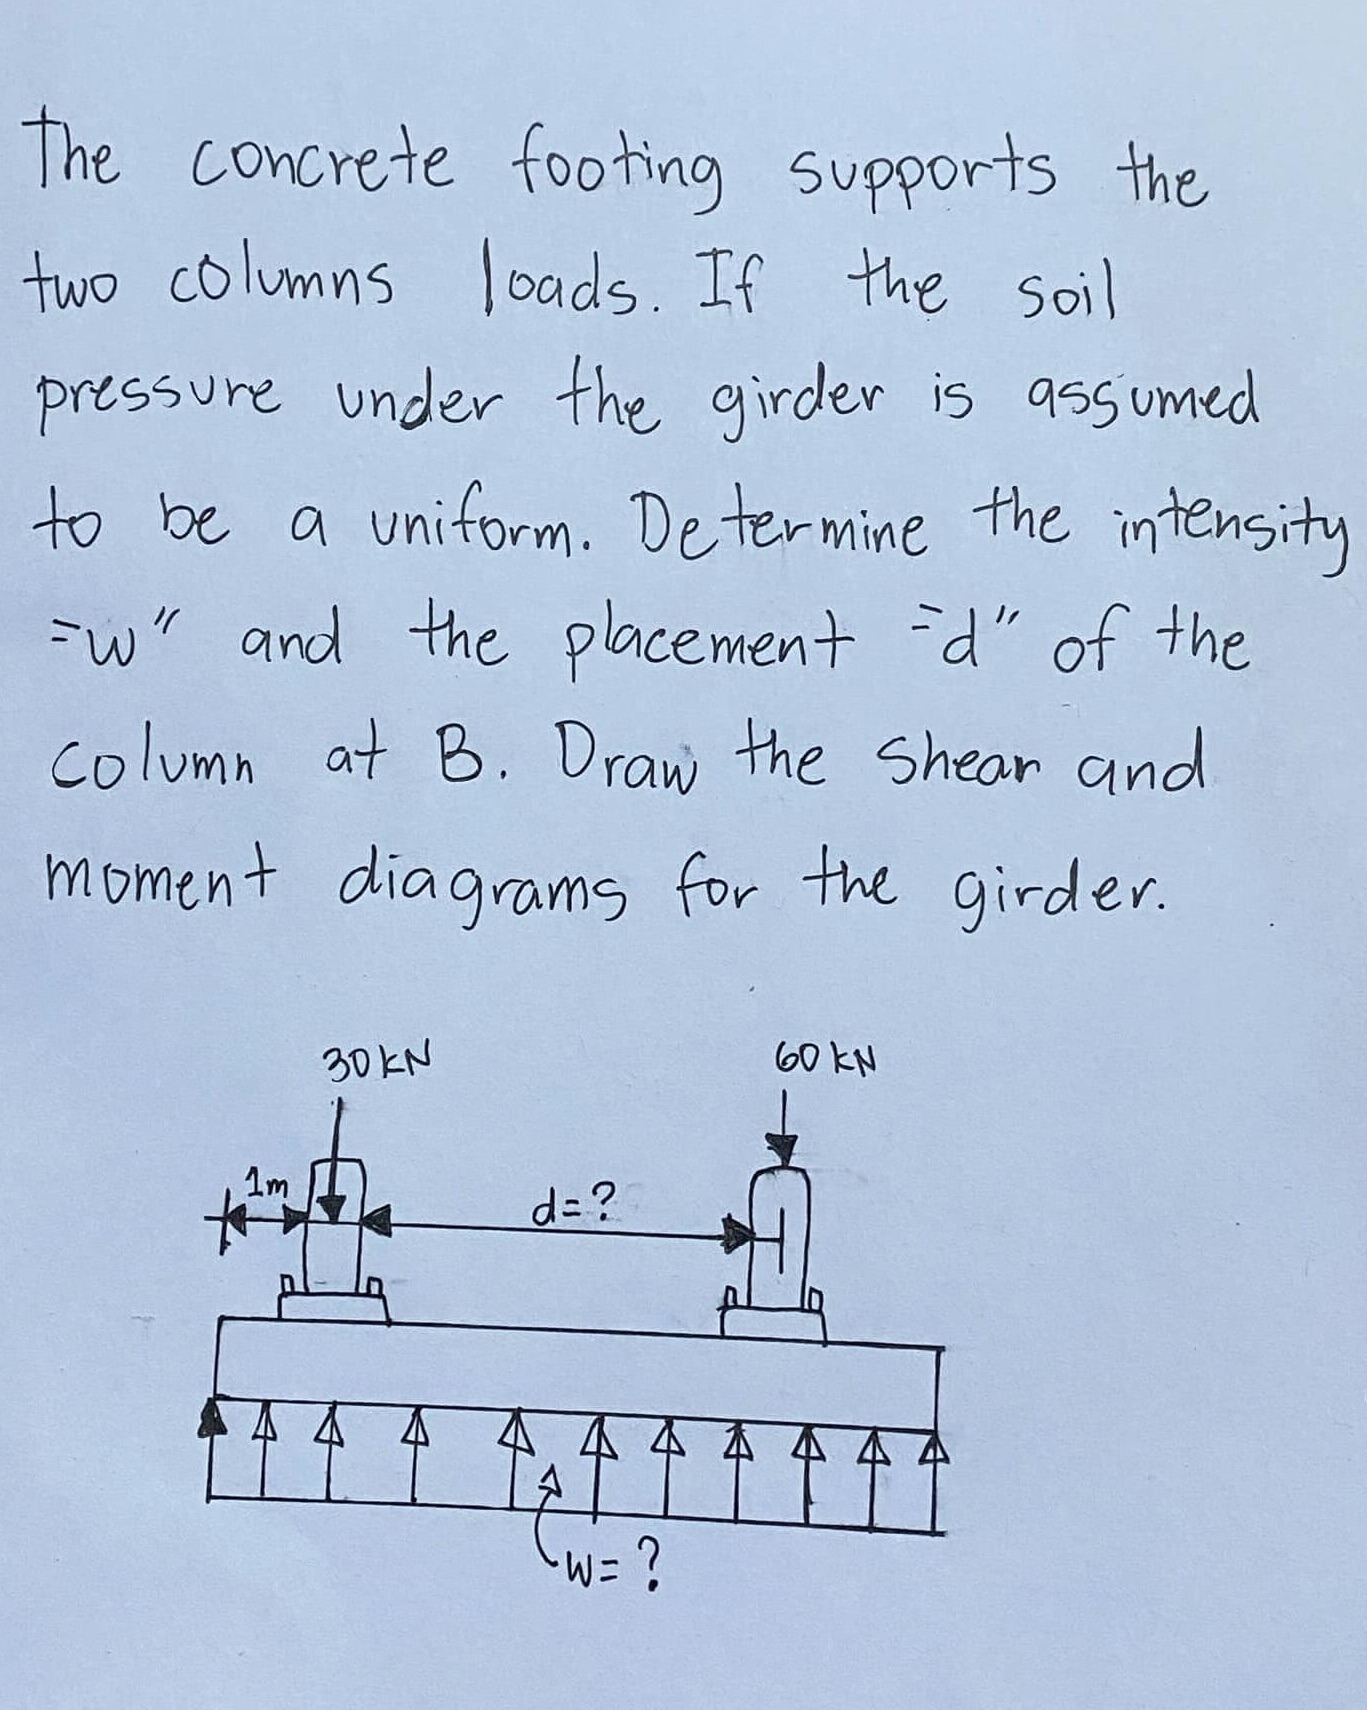 The concrete footing supports the
two columns loads. If the soil
pressure under the girder is assumed
to be a uniform. Determine the intensity
=w" and the placement =d" of the
column at B. Draw the shear and
moment diagrams for the girder.
30 kN 60 kN
1m d=?
w=?